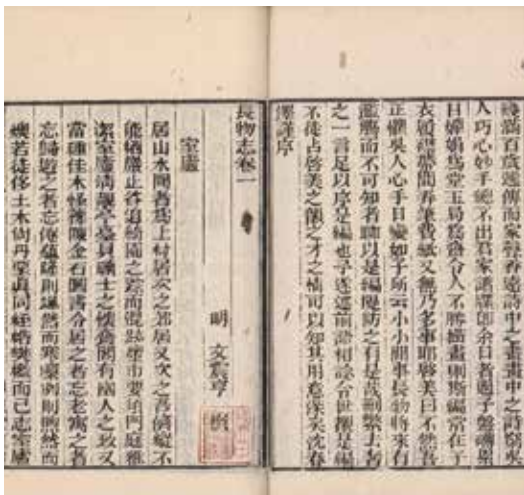 幾滿百歲遞傳而家聲香遠詩中之畫畫中之詩窮吳
人巧心妙手總不出君家譜牒卽余日者過子盤礴累
日嬋娟爲堂玉局爲齋令人不勝描畫則斯編常在子
衣履襟帶間弄筆費紙又無乃多事耶啓美曰不然吾
正懼吳人心手日變如子所云小小閒事長物將來有
濫觴而不可知者聊以是編隄防之有是哉刪繁去奢
之一言足以序是編也予遂述前語相諗令世覩是編
不徒占啓美之韻之才之情可以知其用意深矣沈春
澤謹序
長物志卷一
明 文震亨 撰
室廬
居山水間者爲上村居次之郊居又次之吾儕縱不
能栖巖止谷追綺園之踪而混跡廛市要須門庭雅
潔室廬清靚亭臺具曠士之懷齋閣有幽人之致又
當種佳木怪籜陳金石圖書令居之者忘老寓之者
忘歸遊之者忘倦蘊隆則颯然而寒凜冽則煦然而
燠若徒侈土木尚丹堊真同桎梏樊檻而已志室廬